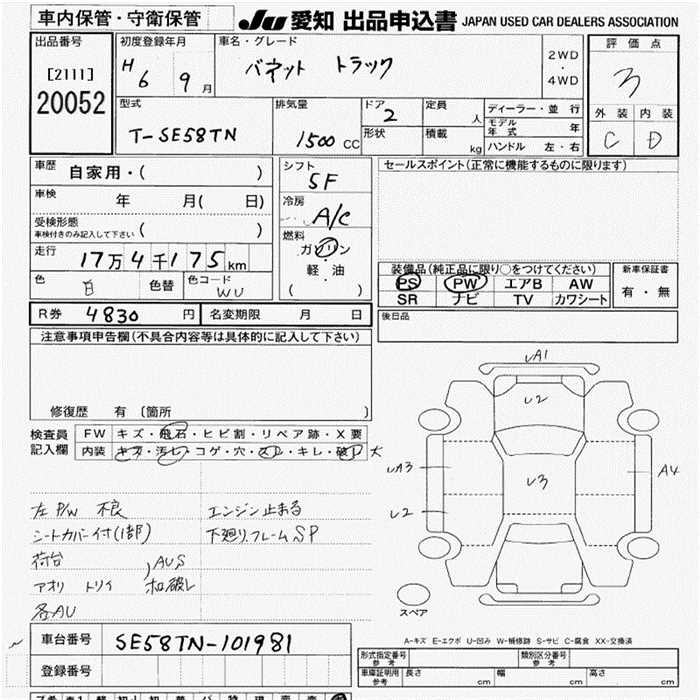 車内保管・守衛保管
JU 愛知 出品申込書 JAPAN USED CAR DEALERS ASSOCIATION
出品番号
[2111]
20052
初度登録年月
H 6 9月
車名・グレード
バネット トラック
2WD
・
4WD
評価点
3
外装 内装
C D
型式
T-SE58TN
排気量
1500 CC
ドア
2
形状
定員
人
積載
kg
ディーラー・並行
モデル年式 年
ハンドル 左・右
車歴 自家用・( )
車検 年 月( 日)
受検形態
車検付きのみ記入して下さい ( )
走行
17万4千175km
色 白 色替 色コード WU
シフト
5F
冷房
A/C
燃料
ガソリン
軽・油
( )
セールスポイント(正常に機能するものに限ります)
装備品(純正品に限り○をつけてください)
PS PW エアB AW
SR ナビ TV カワシート
新車保証書
有・無
R券 4830円 名変期限 月 日
後日品
注意事項申告欄(不具合内容等は具体的に記入して下さい)
修復歴 有 〔箇所 〕
検査員
記入欄
FW キズ・飛石・ヒビ割・リペア跡・X要
内装 キズ・汚レ・コゲ・穴・スレ・キレ・破レ 大
左P/W 不良 エンジン止まる
シートカバー付(1部) 下廻リ.フレームSP
荷台
アオリ トリイ
AUS
各AU
UA1
U2
UA3
U3
A4
U2
スペア
A-キズ E-エクボ U-凹み W-補修跡 S-サビ C-腐食 XX-交換済
車台番号 SE58TN-101981
登録番号
形式指定番号
参考
類別区分番号
参考
車庫証明用
参考
長さ cm 幅 cm 高さ cm